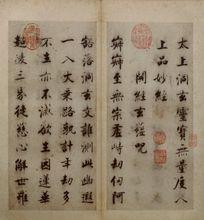 太上洞玄靈寶無量度人
上品妙經
開經玄蘊呪
寂寂至無宗虛峙劫仞阿
豁落洞玄文誰測此幽遐
一入大乘路孰計年劫多
不生亦不滅欲生因蓮華
超凌三界徒慈心解世羅